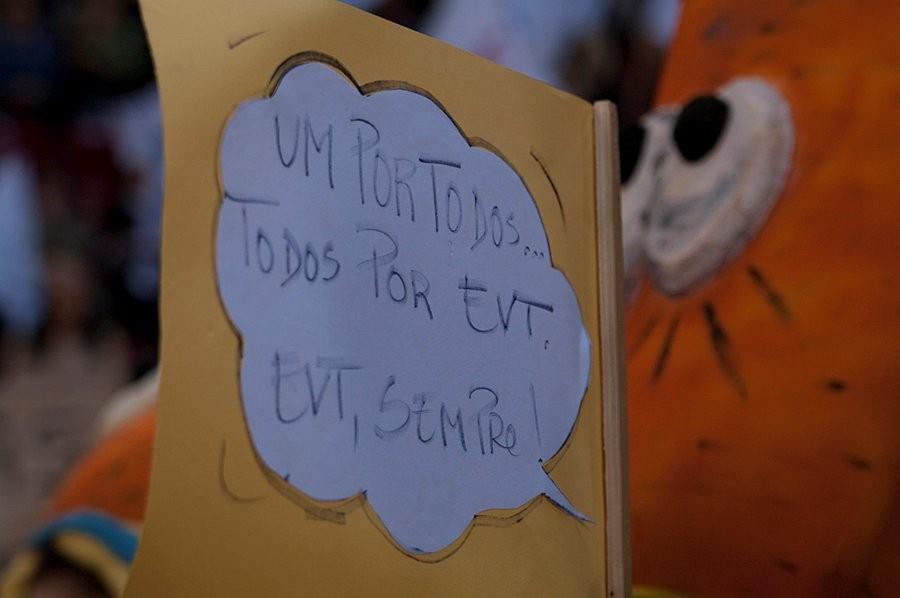 UM POR TODOS...
TODOS POR EVT.
EVT, SEMPRe!